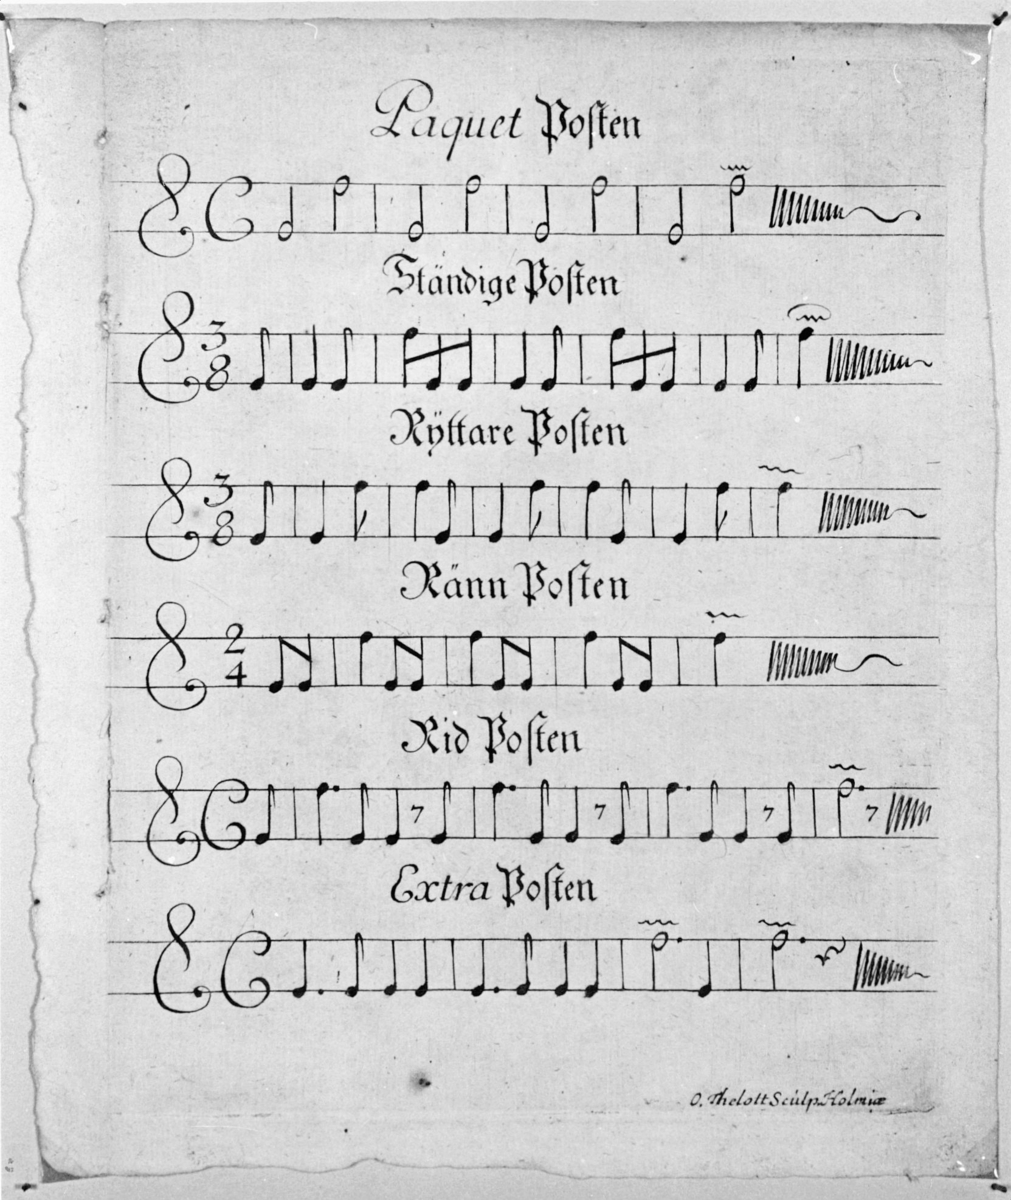 Paquet Posten
Ständige Posten
3
8
Rÿttare Posten
3
8
Ränn Posten
2
4
Rid Posten
Extra Posten
O. Thelott Sculp. Holmiæ